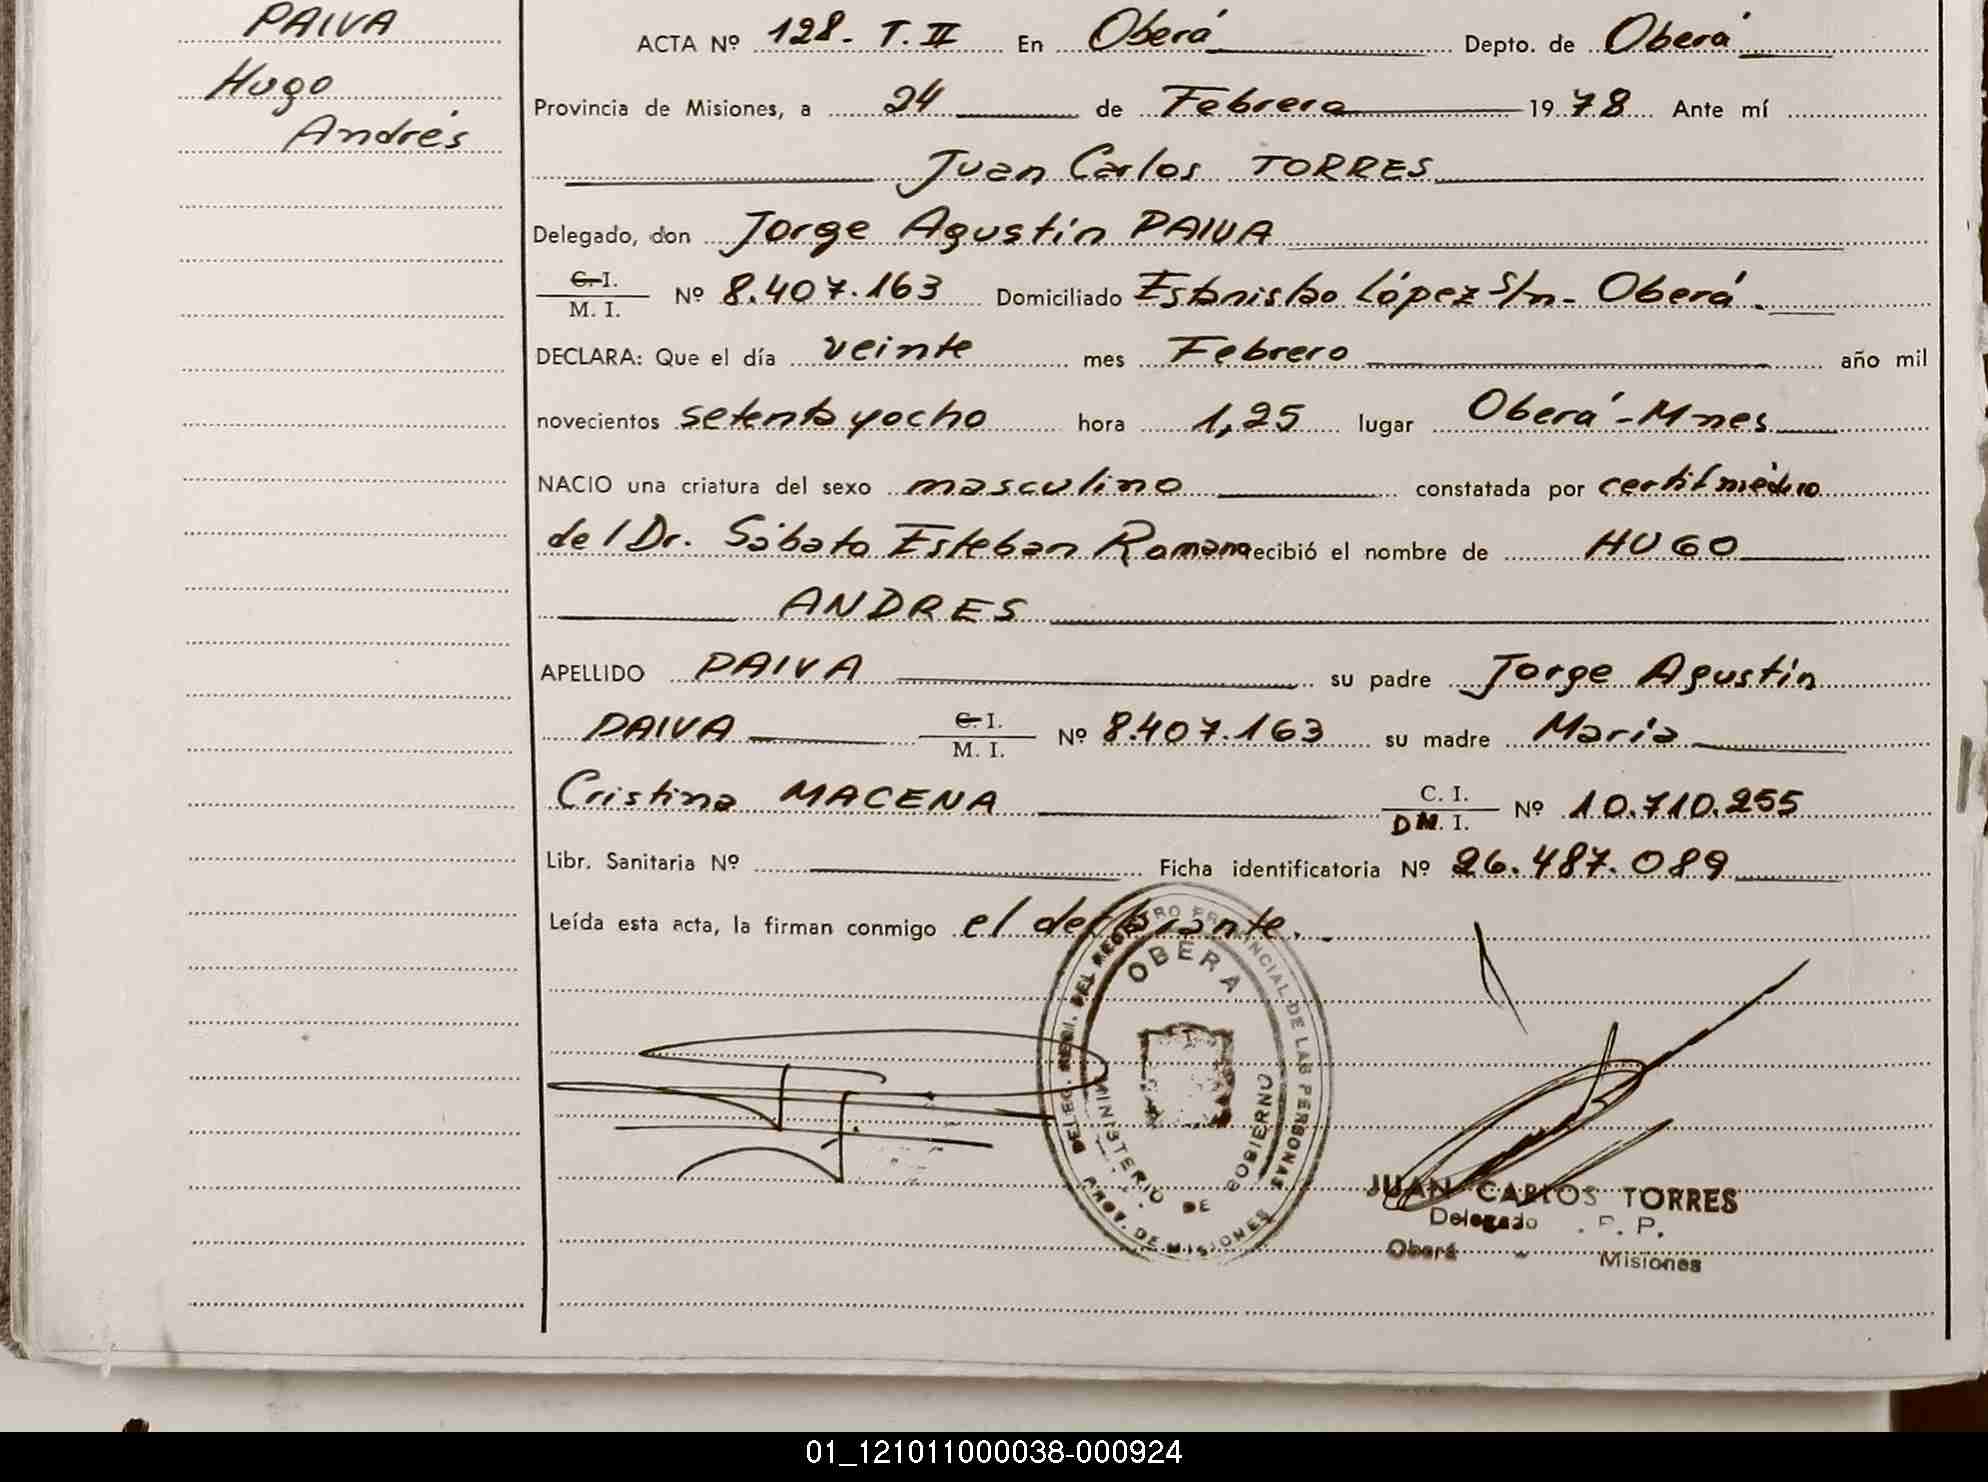 PAIVA
Hugo
Andrés
ACTA Nº 128- T. II En Oberá Depto. de Oberá
Provincia de Misiones, a 24 de Febrero 19 78 Ante mí
Juan Carlos TORRES
Delegado, don Jorge Agustín PAIVA
C. I. / M. I. Nº 8.407.163 Domiciliado Estanislao López S/n- Oberá.
DECLARA: Que el día veinte mes Febrero año mil
novecientos setenta y ocho hora 1,25 lugar Oberá-Mnes
NACIO una criatura del sexo masculino constatada por certif médico
del Dr. Sábato Esteban Romano recibió el nombre de HUGO
ANDRES
APELLIDO PAIVA su padre Jorge Agustín
PAIVA C. I. / M. I. Nº 8.407.163 su madre María
Cristina MACENA C. I. / DN. I. Nº 10.710.255
Libr. Sanitaria Nº Ficha identificatoria Nº 26.487.089
Leída esta acta, la firman conmigo el declarante.
DELEG. DEL REGISTRO PROVINCIAL DE LAS PERSONAS
OBERA
MINISTERIO DE GOBIERNO
PROV. DE MISIONES
JUAN CARLOS TORRES
Delegado R. P. P.
Oberá Misiones
01_121011000038-000924